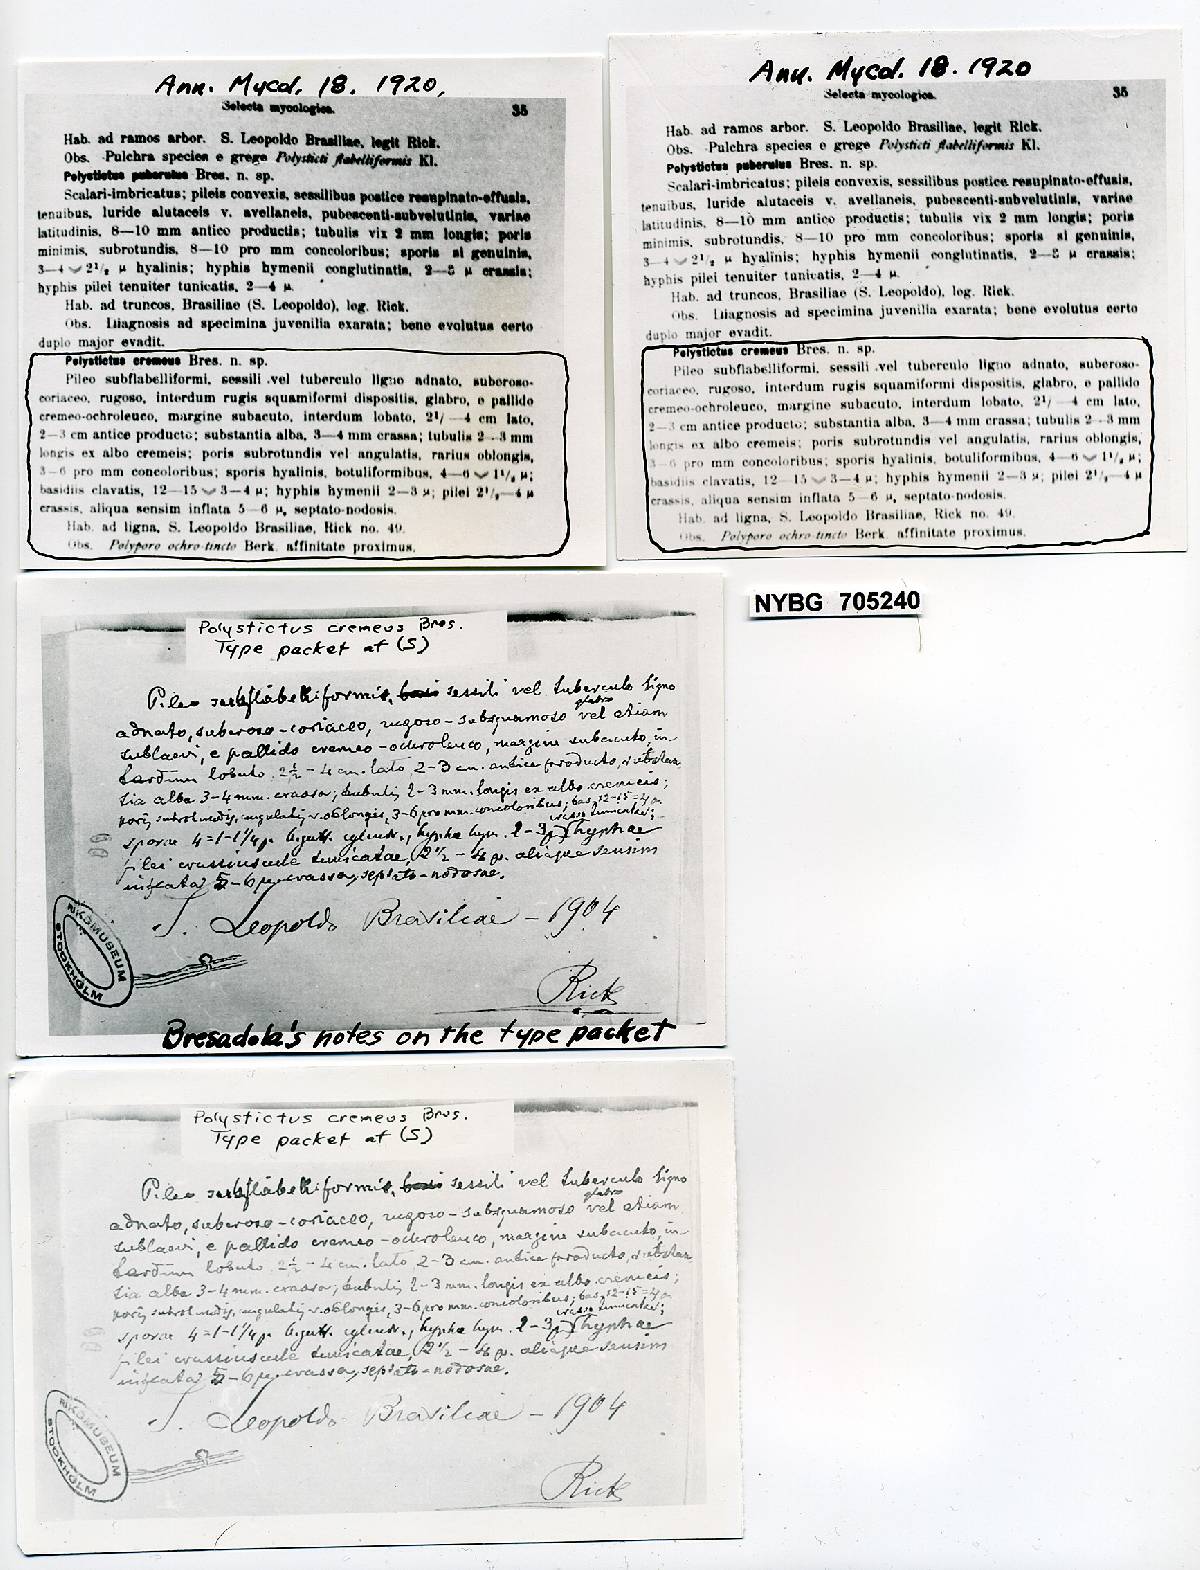 Ann. Mycol. 18. 1920.
Selecta mycologica. 35
Hab. ad ramos arbor. S. Leopoldo Brasiliae, legit Rick.
Obs. Pulchra species e grege Polysticti flabelliformis Kl.
Polystictus puberulus Bres. n. sp.
Scalari-imbricatus; pileis convexis, sessilibus postice resupinato-effusis,
tenuibus, luride alutaceis v. avellaneis, pubescenti-subvelutinis, variae
latitudinis, 8—10 mm antico productis; tubulis vix 2 mm longis; poris
minimis, subrotundis, 8—10 pro mm concoloribus; sporis si genuinis,
3—4 ⌣ 2¹/₂ μ hyalinis; hyphis hymenii conglutinatis, 2—3 μ crassis;
hyphis pilei tenuiter tunicatis, 2—4 μ.
Hab. ad truncos, Brasiliae (S. Leopoldo), leg. Rick.
Obs. Diagnosis ad specimina juvenilia exarata; bene evolutus certo
duplo major evadit.
Polystictus cremeus Bres. n. sp.
Pileo subflabelliformi, sessili vel tuberculo ligno adnato, suberoso-
coriaceo, rugoso, interdum rugis squamiformi dispositis, glabro, e pallido
cremeo-ochroleuco, margine subacuto, interdum lobato, 2¹/ —4 cm lato,
2—3 cm antice producto; substantia alba, 3—4 mm crassa; tubulis 2—3 mm
longis ex albo cremeis; poris subrotundis vel angulatis, rarius oblongis,
3—6 pro mm concoloribus; sporis hyalinis, botuliformibus, 4—6 ⌣ 1¹/₂ μ;
basidiis clavatis, 12—15 ⌣ 3—4 μ; hyphis hymenii 2—3 μ; pilei 2¹/₂—4 μ
crassis, aliqua sensim inflata 5—6 μ, septato-nodosis.
Hab. ad ligna, S. Leopoldo Brasiliae, Rick no. 49.
Obs. Polyporo ochro-tincto Berk. affinitate proximus.
Ann. Mycol. 18. 1920
Selecta mycologica. 35
Hab. ad ramos arbor. S. Leopoldo Brasiliae, legit Rick.
Obs. Pulchra species e grege Polysticti flabelliformis Kl.
Polystictus puberulus Bres. n. sp.
Scalari-imbricatus; pileis convexis, sessilibus postice resupinato-effusis,
tenuibus, luride alutaceis v. avellaneis, pubescenti-subvelutinis, variae
latitudinis, 8—10 mm antico productis; tubulis vix 2 mm longis; poris
minimis, subrotundis, 8—10 pro mm concoloribus; sporis si genuinis,
3—4 ⌣ 2¹/₂ μ hyalinis; hyphis hymenii conglutinatis, 2—3 μ crassis;
hyphis pilei tenuiter tunicatis, 2—4 μ.
Hab. ad truncos, Brasiliae (S. Leopoldo), leg. Rick.
Obs. Diagnosis ad specimina juvenilia exarata; bene evolutus certo
duplo major evadit.
Polystictus cremeus Bres. n. sp.
Pileo subflabelliformi, sessili vel tuberculo ligno adnato, suberoso-
coriaceo, rugoso, interdum rugis squamiformi dispositis, glabro, e pallido
cremeo-ochroleuco, margine subacuto, interdum lobato, 2¹/ —4 cm lato,
2—3 cm antice producto; substantia alba, 3—4 mm crassa; tubulis 2—3 mm
longis ex albo cremeis; poris subrotundis vel angulatis, rarius oblongis,
3—6 pro mm concoloribus; sporis hyalinis, botuliformibus, 4—6 ⌣ 1¹/₂ μ;
basidiis clavatis, 12—15 ⌣ 3—4 μ; hyphis hymenii 2—3 μ; pilei 2¹/₂—4 μ
crassis, aliqua sensim inflata 5—6 μ, septato-nodosis.
Hab. ad ligna, S. Leopoldo Brasiliae, Rick no. 49.
Obs. Polyporo ochro-tincto Berk. affinitate proximus.
NYBG 705240
Polystictus cremeus Bres.
Type packet at (S)
Pileo subflabelliformis, sessili vel tuberculo ligno
adnato, suberoso-coriaceo, rugoso-subsquamoso glabro vel etiam
sublaevi, e pallido cremeo-ochroleuco, margine subacuto, in-
terdum lobato. 2½-4 cm. lato 2-3 cm. antice producto, substan-
tia alba 3-4 mm. crassa; tubulis 2-3 mm. longis ex albo cremeis;
poris v. oblongis, 3-6 pro mm. concoloribus; bas. 12-15=4 μ.
sporae 4=1-1¼ μ. cylindr., hypha hym. 2-3 μ hyphae
pilei crassiuscule tunicatae, 2½-4 μ. aliquae sensim
inflata 5-6 μ crassa, septato-nodosae.
S. Leopoldo Brasiliae - 1904
Rick
RIKSMUSEUM
STOCKHOLM
Bresadola's notes on the type packet
Polystictus cremeus Bres.
Type packet at (S)
Pileo subflabelliformis, sessili vel tuberculo ligno
adnato, suberoso-coriaceo, rugoso-subsquamoso glabro vel etiam
sublaevi, e pallido cremeo-ochroleuco, margine subacuto, in-
terdum lobato. 2½-4 cm. lato 2-3 cm. antice producto, substan-
tia alba 3-4 mm. crassa; tubulis 2-3 mm. longis ex albo cremeis;
poris v. oblongis, 3-6 pro mm. concoloribus; bas. 12-15=4 μ.
sporae 4=1-1¼ μ. cylindr., hypha hym. 2-3 μ hyphae
pilei crassiuscule tunicatae, 2½-4 μ. aliquae sensim
inflata 5-6 μ crassa, septato-nodosae.
S. Leopoldo Brasiliae - 1904
Rick
RIKSMUSEUM
STOCKHOLM